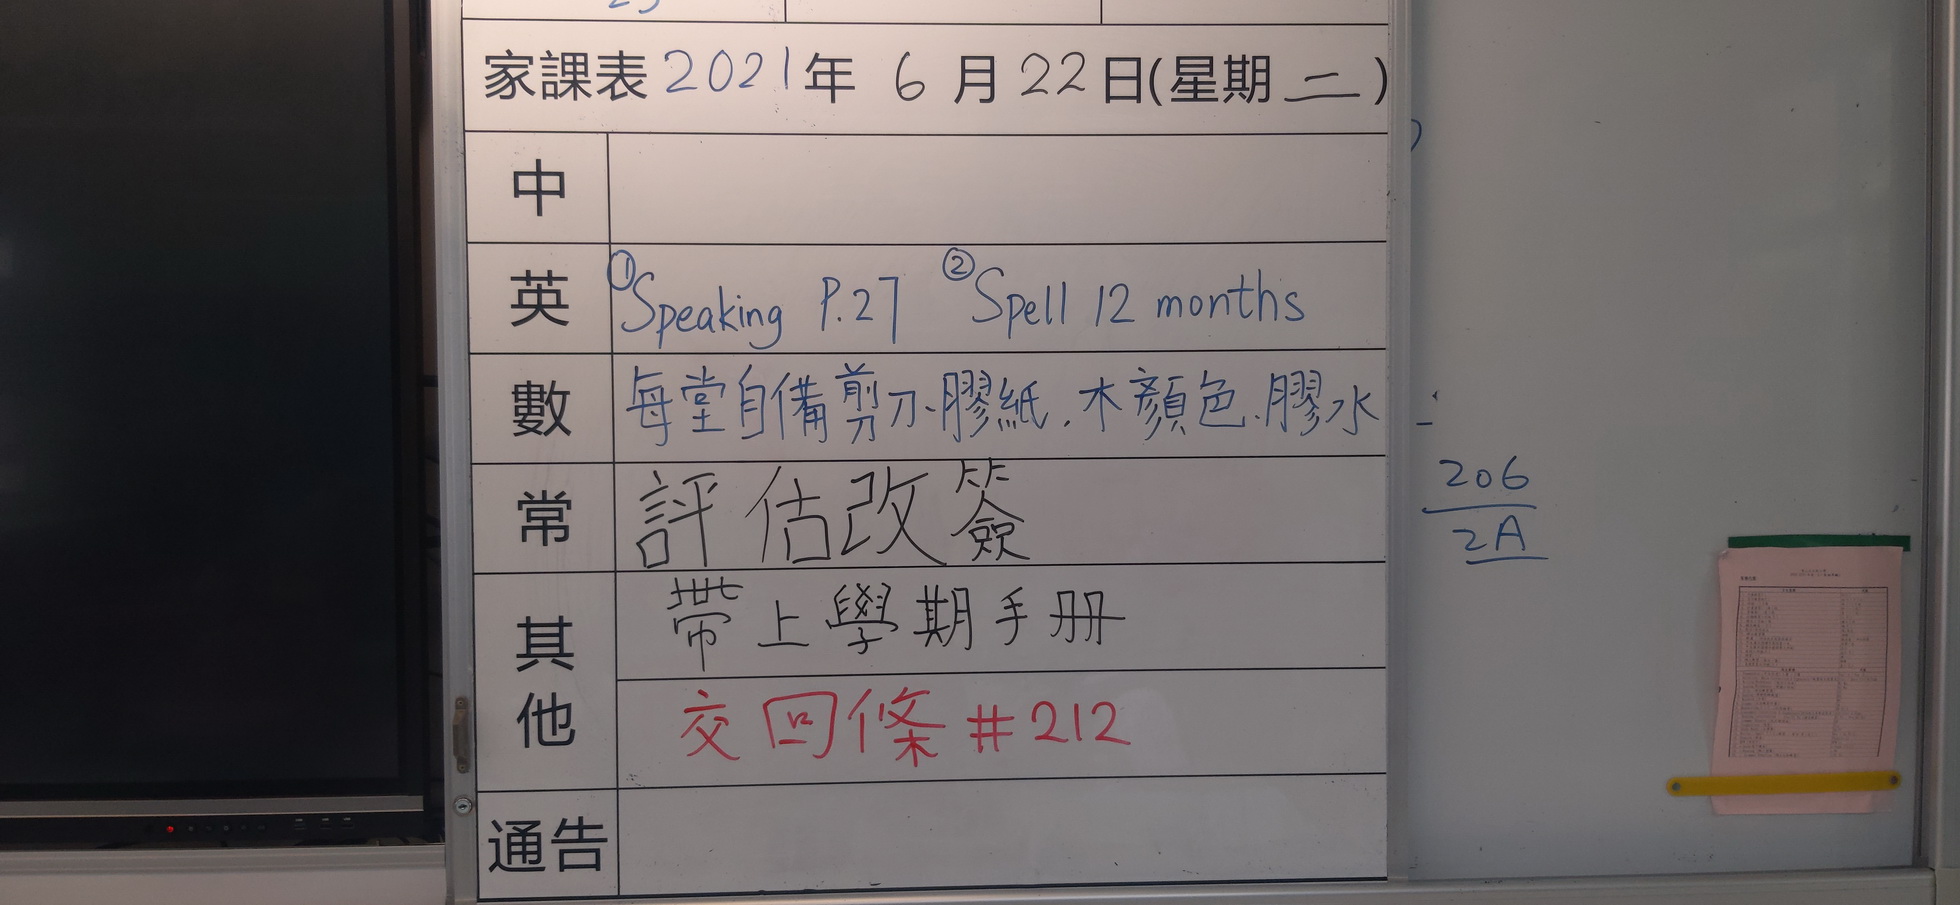 家課表 2021年 6月22日(星期二)
中
英 ①Speaking P.27 ②Spell 12 months
數 每堂自備剪刀、膠紙、木顏色、膠水
常 評估改簽
其他 帶上學期手册
交回條 #212
通告
206
2A